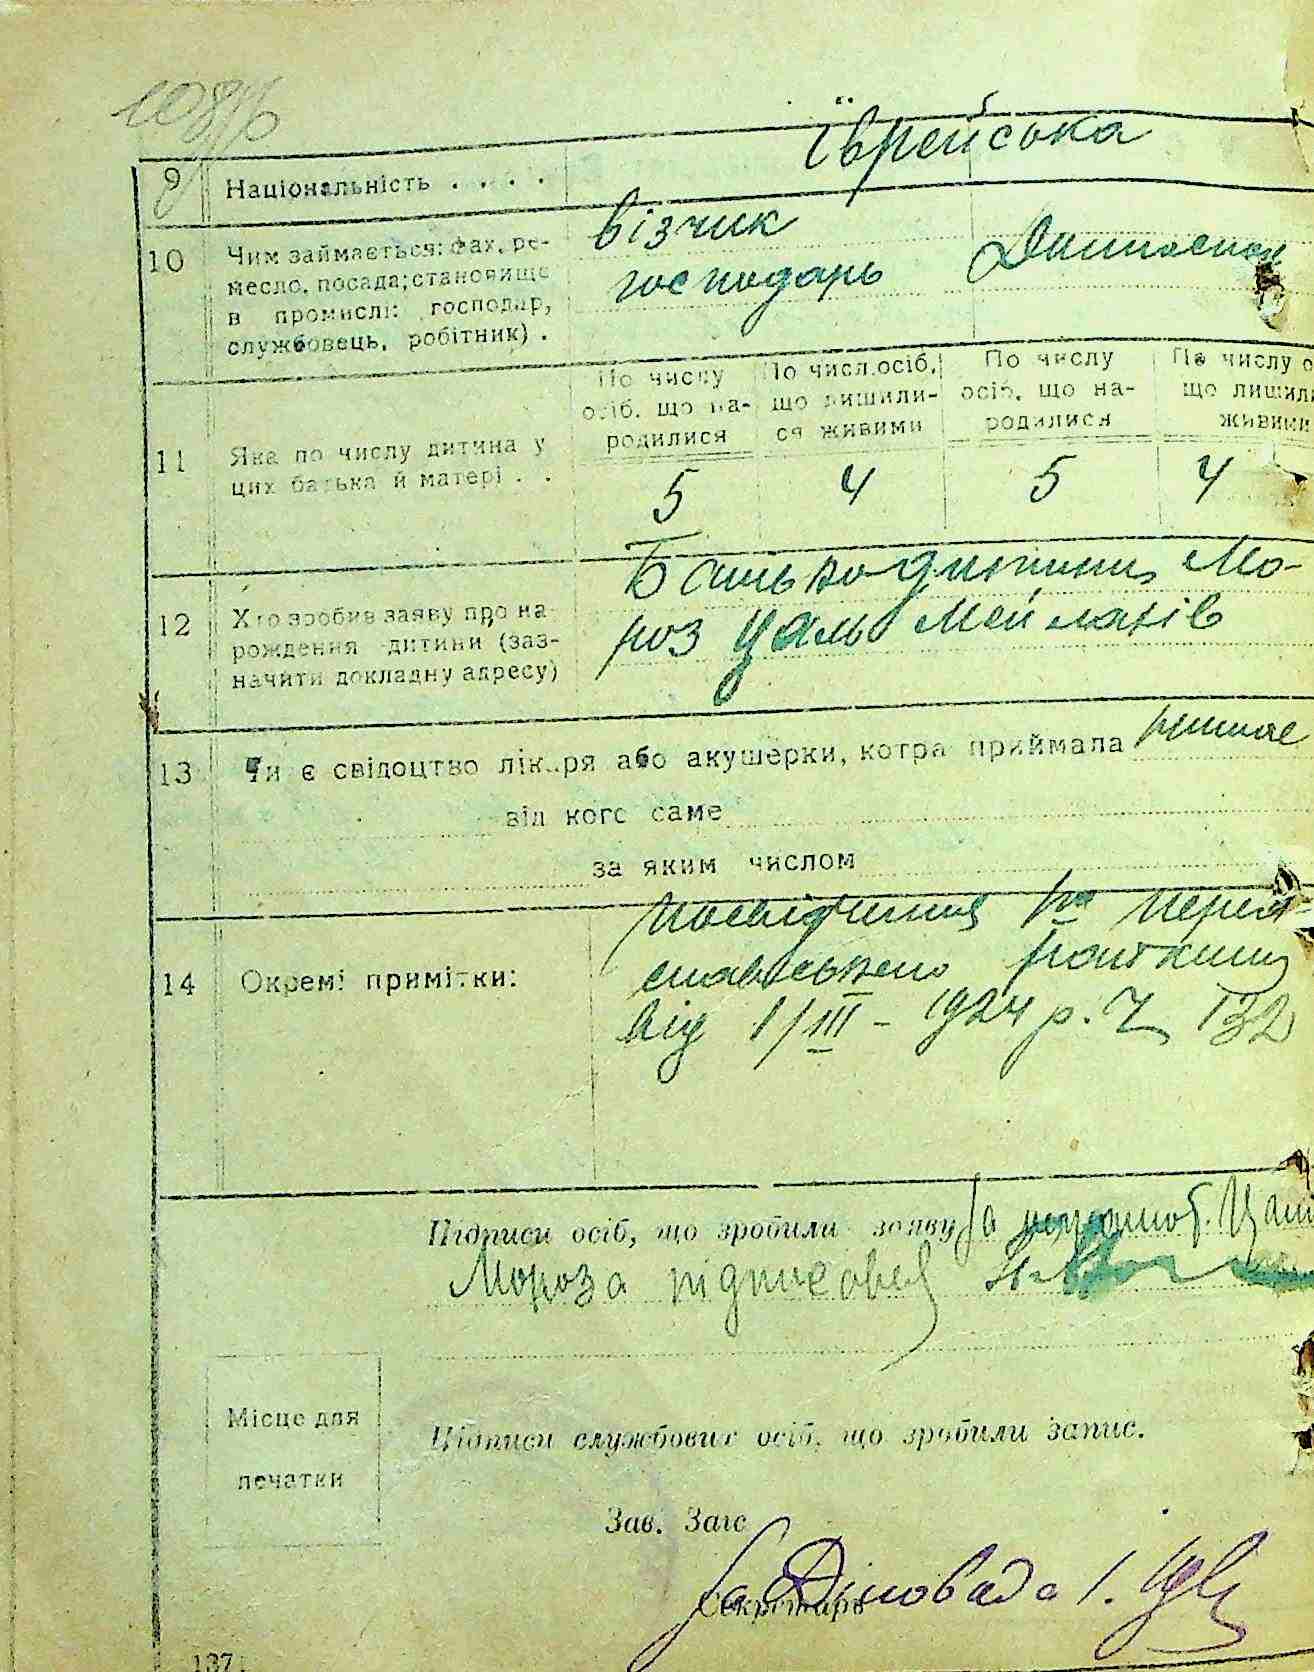 9 Національність . . . . Їврейська
10 Чим займається: фах, ре-
месло, посада; становище
в промислі: господар,
службовець, робітник) .
візчик
господарь
Домашня
11 Яка по числу дитина у
цих батька й матері . .
По числу
осіб, що на-
родилися
По числ.осіб,
що лишили-
ся живими
По числу
осіб, що на-
родилися
По числу о
що лишили
живими
5 4 5 4
12 Хто зробив заяву про на-
рождення дитини (заз-
начити докладну адресу)
Батько дитини Мо-
роз Цаль Мейлахів
13 Чи є свідоцтво лікаря або акушерки, котра приймала
від кого саме
за яким числом
14 Окремі примітки:
Посвідчення Перея-
славського
від 1/III - 1924 р. Ч 132
Підписи осіб, що зробили заяву За неграмот. Цаля
Мороза підписався
Місце для
печатки
Підписи службових осіб, що зробили запис.
Зав. Загс
Секретарь
За Діловода І.
137.